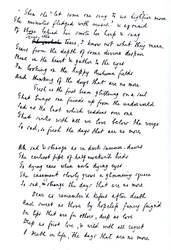 Then she "let some one sing to us lightlier move
The minutes fledged with music" & a maid
Of those beside her smote her harp & sang
Tears, I know not what they mean,
Tears from the depth of some divine despair
Rise in the heart & gather to the eyes
In looking on the happy Autumn fields
And thinking of the days that are no more
Fresh as the first beam glittering on a sail
That brings our friends up from the underworld
Sad as the last which reddens over one
That sinks with all we love below the verge
So sad, so fresh the days that are no more
Ah sad & strange as in dark summer dawns
The earliest pipe of half-awaken'd birds
To dying ears when unto dying eyes
The casement slowly grows a glimmering square
So sad, so strange the days that are no more
Dear as remember'd kisses after death
And sweet as those by hopeless fancy feign'd
On lips that are for others, deep as love
Deep as first love, & wild with all regret
O Death in life, the days that are no more